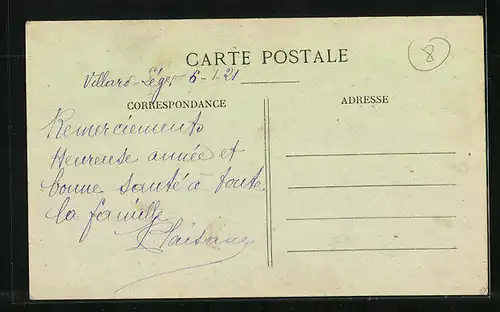 CARTE POSTALE
8
Villard-Léger 6-1-21
CORRESPONDANCE
ADRESSE
Remerciements
Heureuse année et
bonne santé à toute
la famille